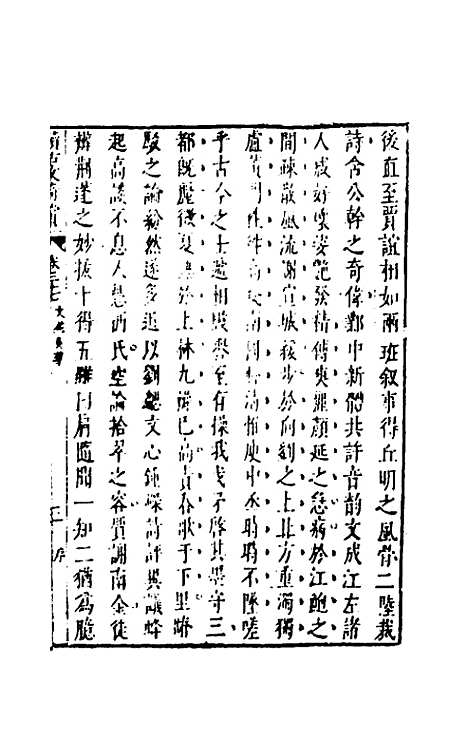 後直至賈誼相如兩班叙事得丘明之風骨二陸裁
詩含公幹之奇偉鄴中新體共許音韵天成江左諸
人咸好瑰姿艷發精博爽麗顏延之急病於江鮑之
間疎散風流謝宣城緩步於向劉之上北方重濁獨
盧黃門往往高飛南國輕清惟庾中丞時時不墜嗟
乎古今之士遞相毀譽至有操我戈矛啓其墨守三
都既麗徵夏熟於上林九辯已高責春歌于下里踳
駁之論紛然遂多近以劉勰文心鍾嶸詩評異議蜂
起高談不息人慚西氏空論拾翠之容質謝南金徒
辨荊蓬之妙拔十得五雖曰肩隨聞一知二猶爲臆